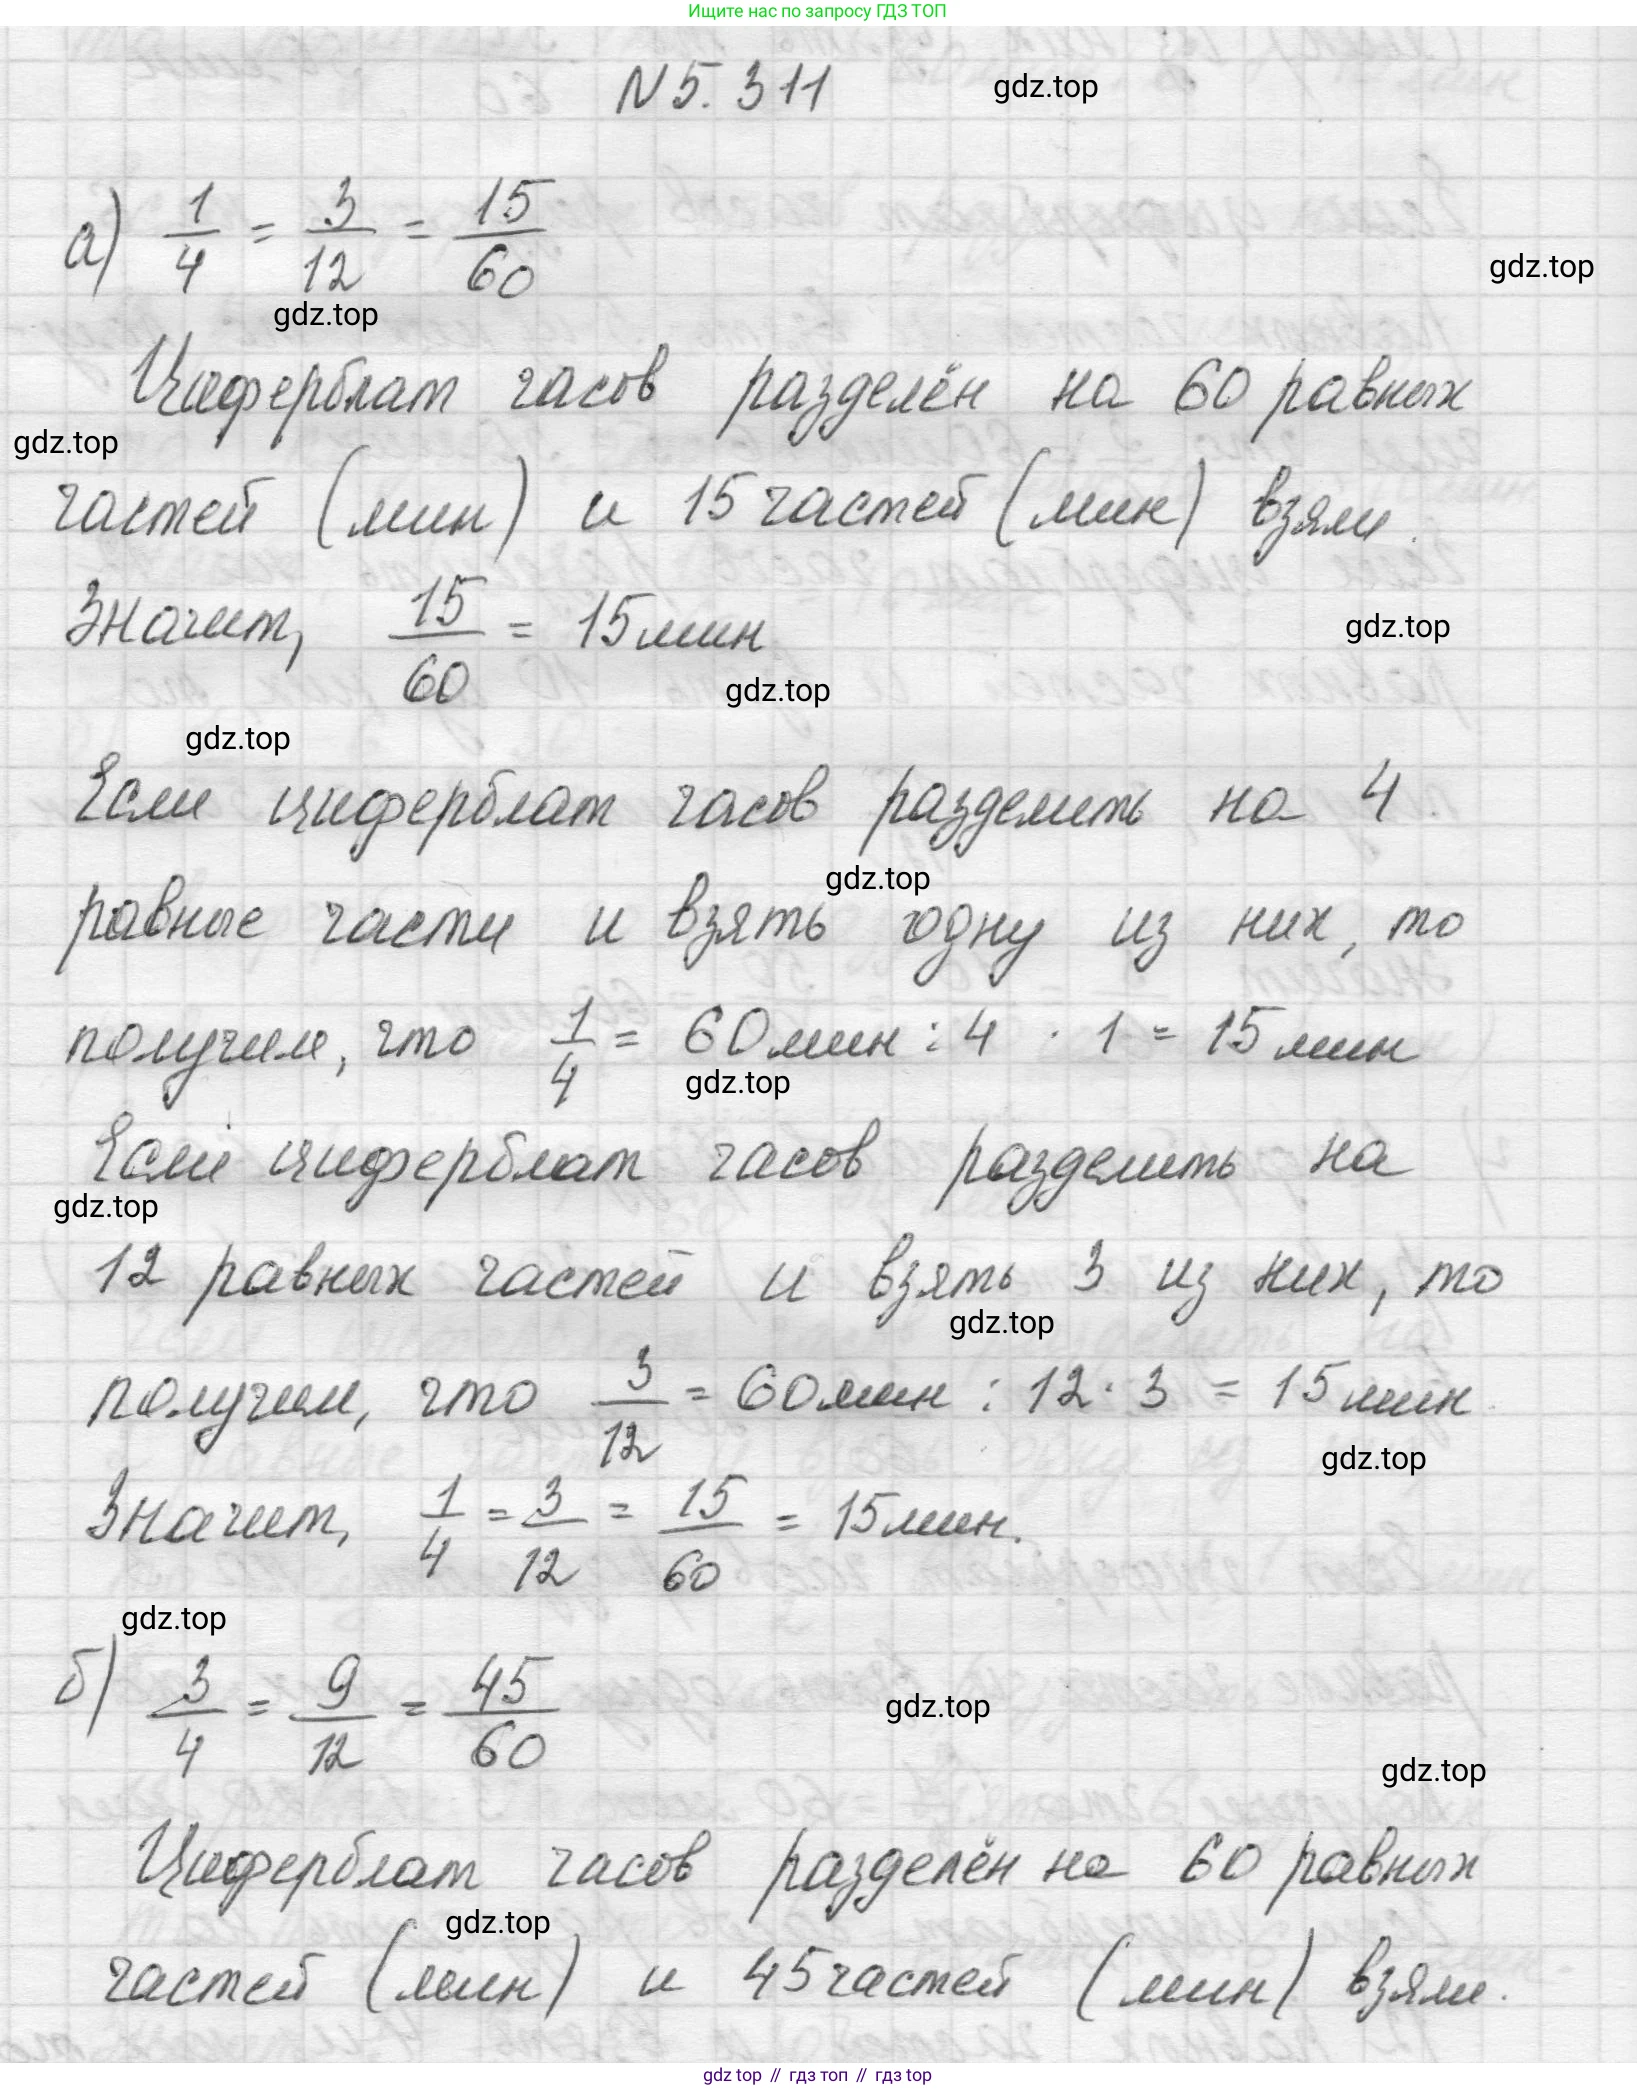 Ищите нас по запросу ГДЗ ТОП
N 5. 311 gdz.top
а) 1/4 = 3/12 = 15/60
gdz.top
gdz.top
Циферблат часов разделён на 60 равных
gdz.top
частей (мин) и 15 частей (мин) взяли.
Значит, 15/60 = 15 мин
gdz.top
gdz.top
gdz.top
Если циферблат часов разделить на 4
gdz.top
равные части и взять одну из них, то
получим, что 1/4 = 60 мин : 4 · 1 = 15 мин
gdz.top
Если циферблат часов разделить на
gdz.top
12 равных частей и взять 3 из них, то
gdz.top
получим, что 3/12 = 60 мин : 12 · 3 = 15 мин.
gdz.top
Значит, 1/4 = 3/12 = 15/60 = 15 мин.
gdz.top
б) 3/4 = 9/12 = 45/60
gdz.top
gdz.top
Циферблат часов разделён на 60 равных
gdz.top
частей (мин) и 45 частей (мин) взяли.
gdz top // гдз топ // gdz.top